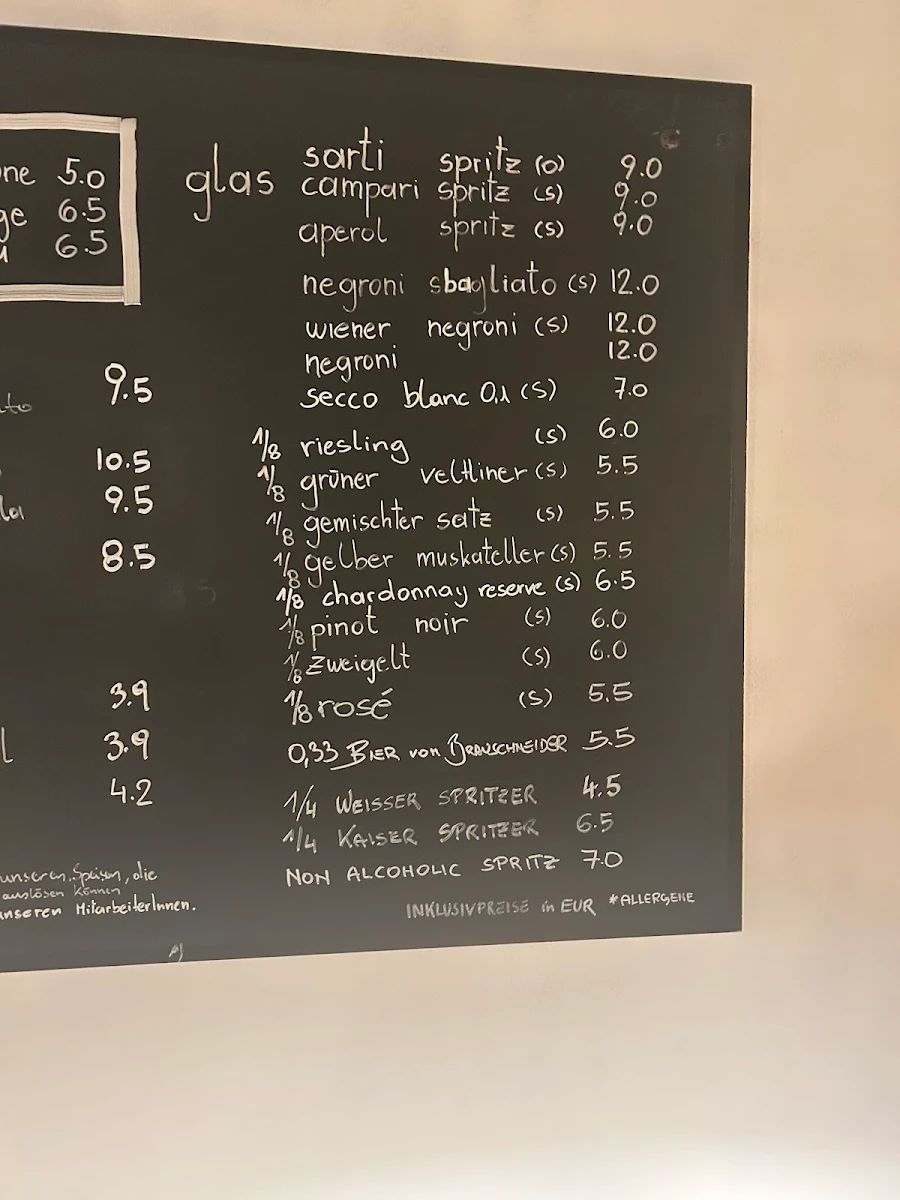 ne 5.0
ge 6.5
6.5
9.5
10.5
9.5
8.5
3.9
3.9
4.2
unseren Speisen, die
auslösen können
unseren MitarbeiterInnen.
A)
glas sarti spritz (o) 9.0
campari spritz (s) 9.0
aperol spritz (s) 9.0
negroni sbagliato (s) 12.0
wiener negroni (s) 12.0
negroni 12.0
secco blanc 0,1 (s) 7.0
1/8 riesling (s) 6.0
1/8 grüner veltliner (s) 5.5
1/8 gemischter satz (s) 5.5
1/8 gelber muskateller (s) 5.5
1/8 chardonnay reserve (s) 6.5
1/8 pinot noir (s) 6.0
1/8 zweigelt (s) 6.0
1/8 rosé (s) 5.5
0,33 BIER von BRAUSCHNEIDER 5.5
1/4 WEISSER SPRITZER 4.5
1/4 KAISER SPRITZER 6.5
NON ALCOHOLIC SPRITZ 7.0
INKLUSIVPREISE in EUR *ALLERGENE